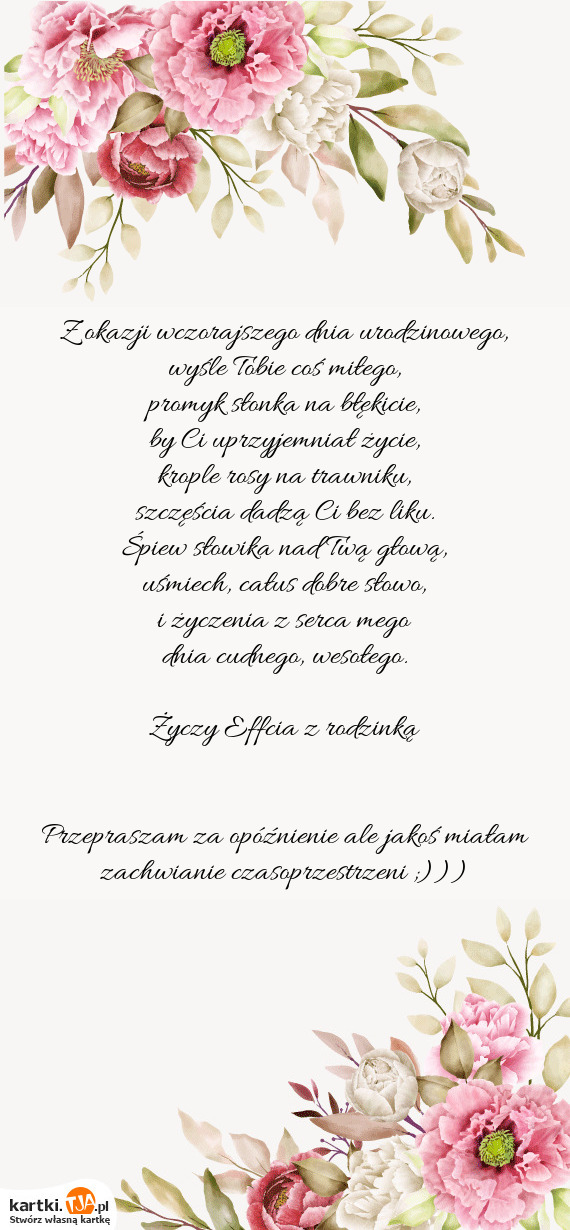 Z okazji wczorajszego dnia urodzinowego,
wyśle Tobie coś miłego,
promyk słonka na błękicie,
by Ci uprzyjemniał życie,
krople rosy na trawniku,
szczęścia dadzą Ci bez liku.
Śpiew słowika nad Twą głową,
uśmiech, całus dobre słowo,
i życzenia z serca mego
dnia cudnego, wesołego.
Życzy Effcia z rodzinką
Przepraszam za opóźnienie ale jakoś miałam
zachwianie czasoprzestrzeni ;) ) )
kartki.TJA.pl
Stwórz własną kartkę